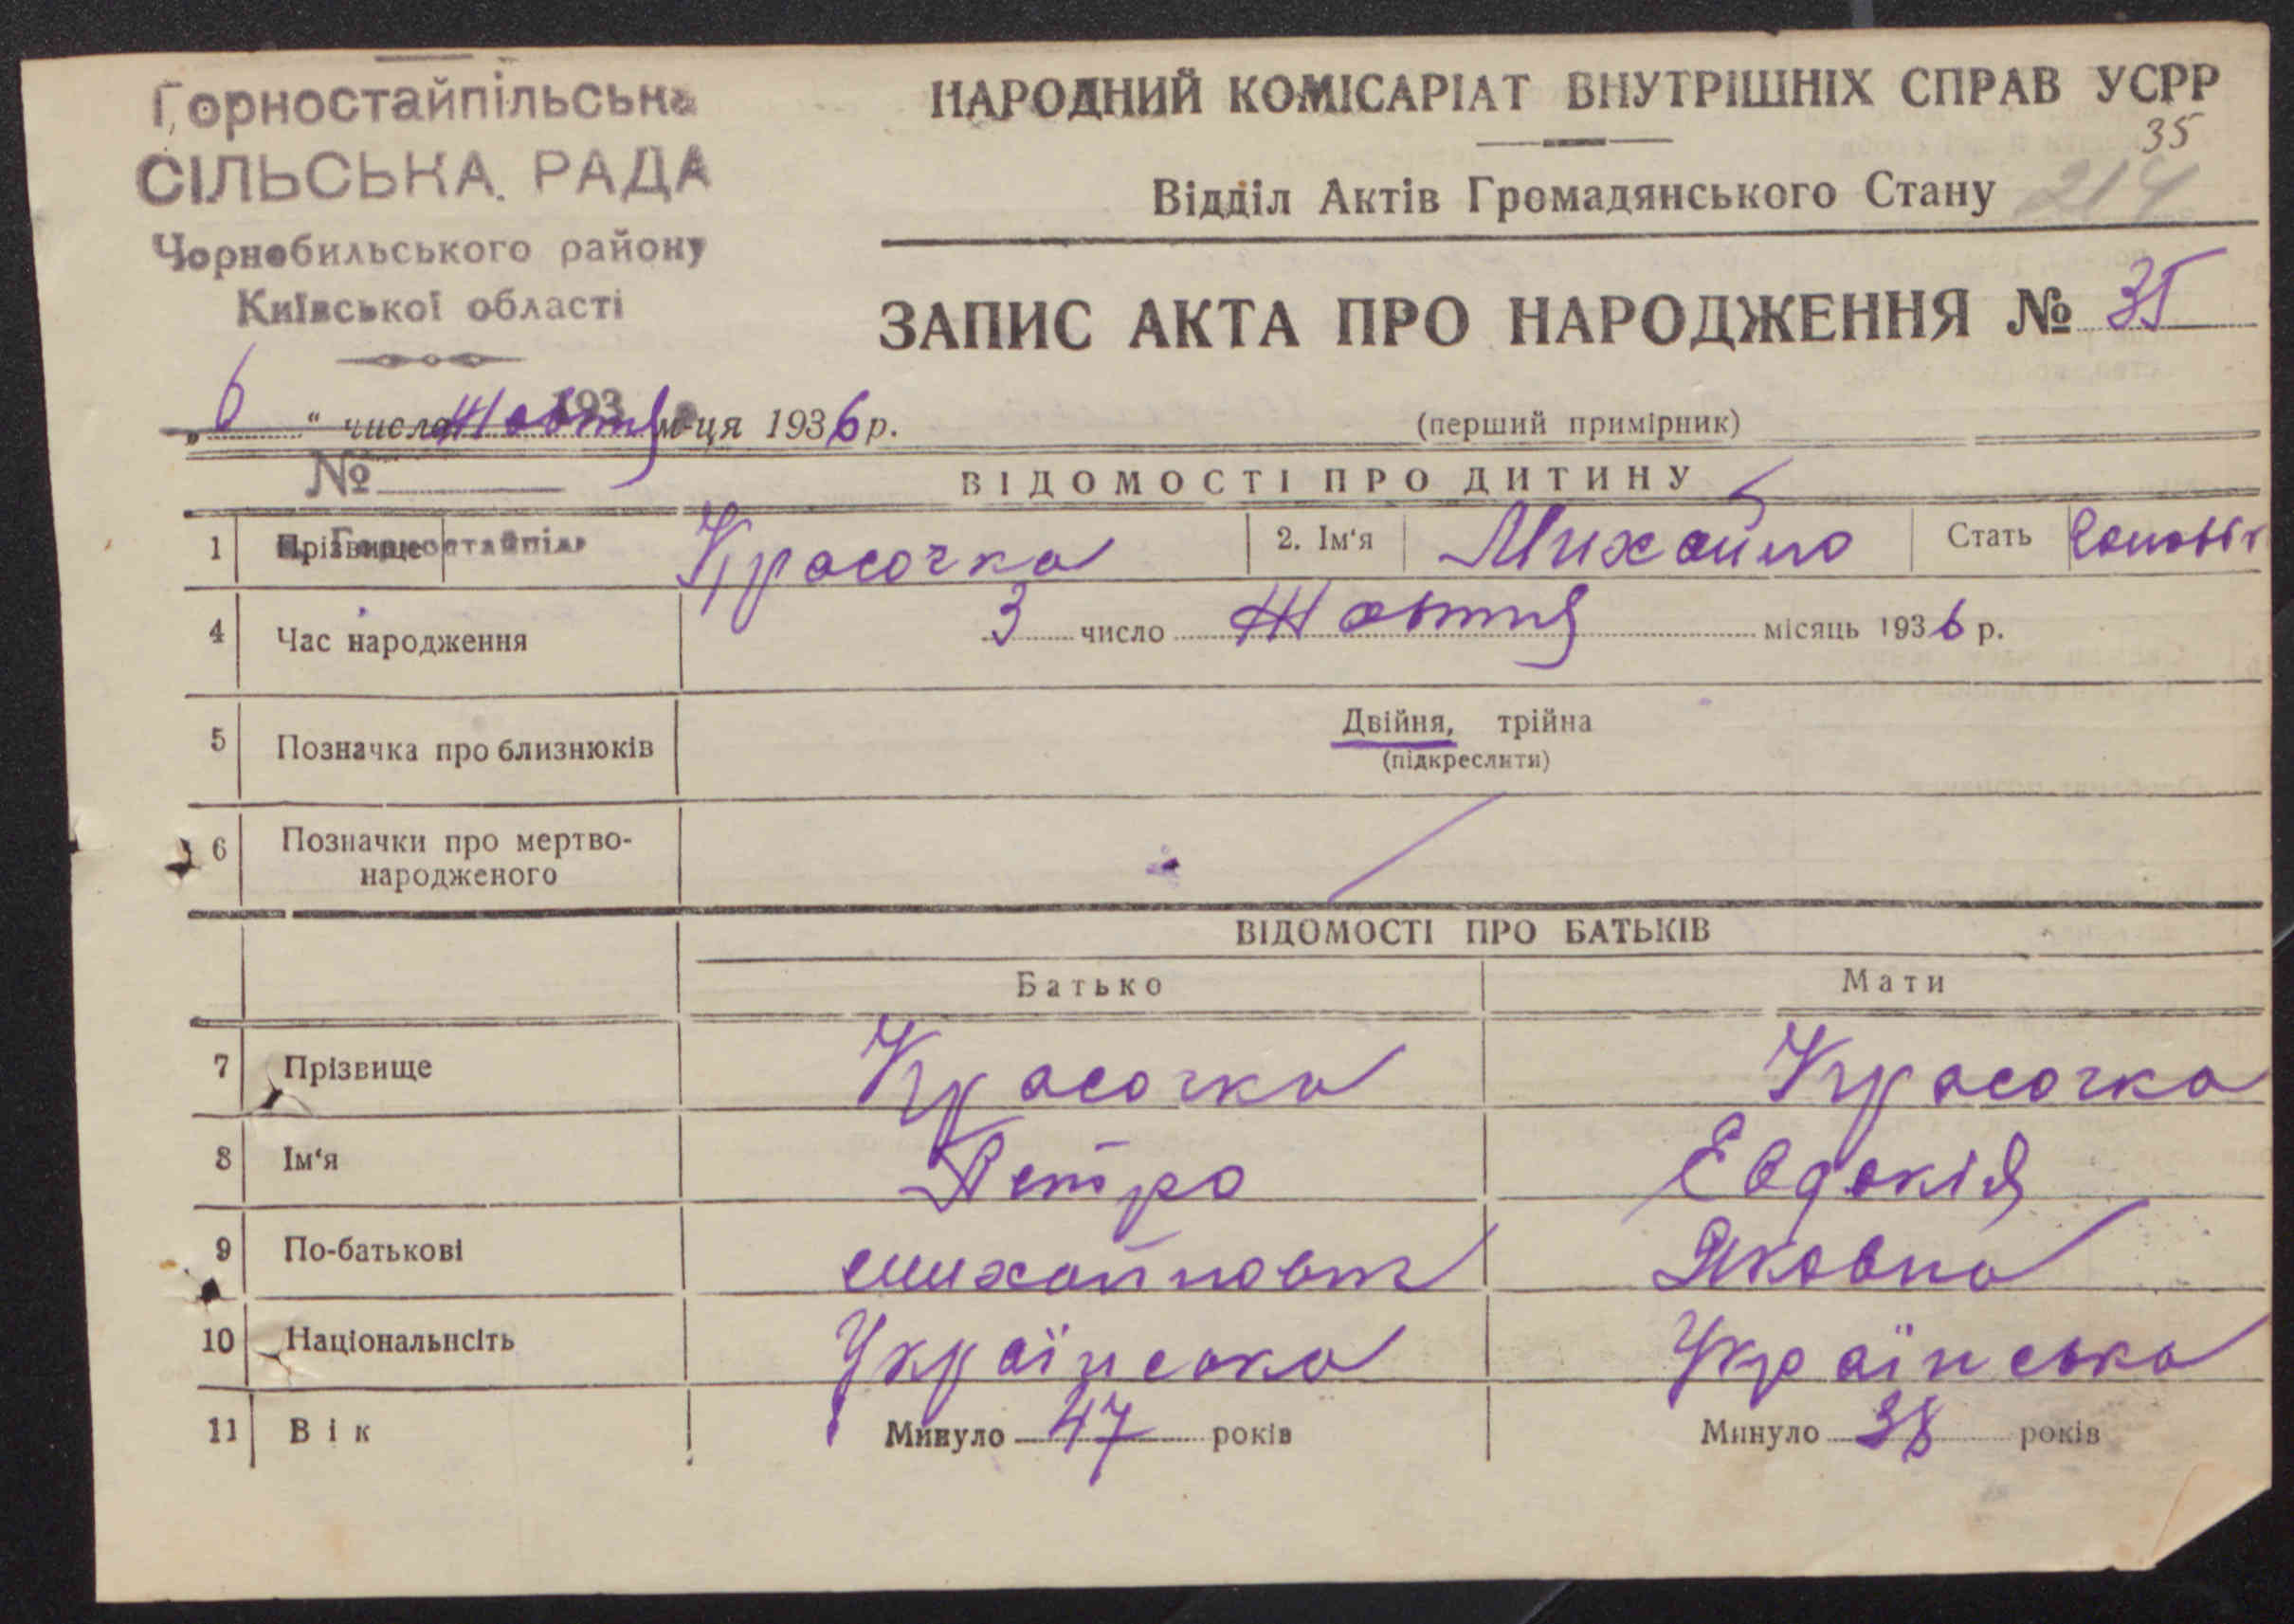 Горностайпільська
СІЛЬСЬКА РАДА
Чорнобильського району
Київської області
НАРОДНИЙ КОМІСАРІАТ ВНУТРІШНІХ СПРАВ УСРР
35
Відділ Актів Громадянського Стану 214
ЗАПИС АКТА ПРО НАРОДЖЕННЯ № 35
193
„ 6 " числа Жовтня м-ця 1936 р.
(перший примірник)
№
ВІДОМОСТІ ПРО ДИТИНУ
1 Прізвище Красочка 2. Ім'я Михайло Стать
4 Час народження 3 число Жовтня місяць 1936 р.
5 Позначка про близнюків Двійня, трійна
(підкреслити)
6 Позначки про мертво-
народженого
ВІДОМОСТІ ПРО БАТЬКІВ
Батько Мати
7 Прізвище Красочка Красочка
8 Ім'я Петро Евдокія
9 По-батькові Яковна
10 Національнсіть Українська Українська
11 Вік Минуло 47 років Минуло 38 років